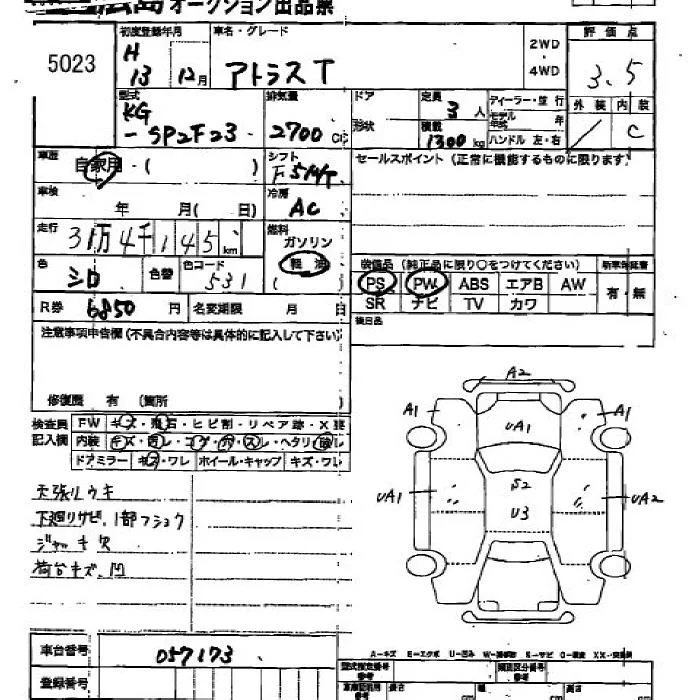 広島オークション出品票
5023
初度登録年月
H 13 12月
車名・グレード
アトラス T
2WD
・
4WD
評価点
3.5
型式
KG
-SP2F23
排気量
2700 cc
ドア
形状
定員 3 人
積載 1300 kg
ディーラー・並行
モデル年式 年
ハンドル 左・右
外装 内装
/ C
車歴
自家用・( )
シフト
F5M/T
セールスポイント(正常に機能するものに限ります)
車検
年 月( 日)
冷房
AC
走行
31万4千145km
燃料
ガソリン
軽油
( )
色
シロ
色替
色コード
531
装備品(純正品に限り○をつけてください)
新車保証書
PS PW ABS エアB AW
SR ナビ TV カワ
有・無
R券 6850 円 名変期限 月 日
後日品
注意事項申告欄(不具合内容等は具体的に記入して下さい)
修復歴 有 (箇所 )
検査員記入欄
FW キズ・飛石・ヒビ割・リペア跡・X要
内装 キズ・汚レ・コゲ・穴・スレ・ヘタリ
ドアミラー キズ・ワレ ホイール・キャップ キズ・ワレ
天張リウキ
下廻りサビ、1部フショク
ジャッキ欠
荷台キズ、凹
A2
A1
A1
UA1
S2
U3
UA1
UA2
A-キズ E-エクボ U-凹み W-補修跡 S-サビ C-腐食 XX-交換済
車台番号
057173
登録番号
型式指定番号
類別区分番号
長さ cm
幅 cm
高さ cm